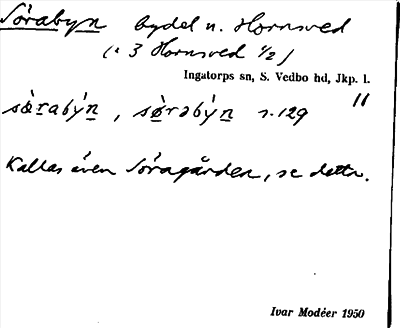 Sörabyn bydel u. Hornsved
(: 3 Hornsved 1/2)
Ingatorps sn, S. Vedbo hd, Jkp. l.
sœ̀rabýn, sœ̀rabýn s. 129 "
Kallas även Söragården, se detta.
Ivar Modéer 1950